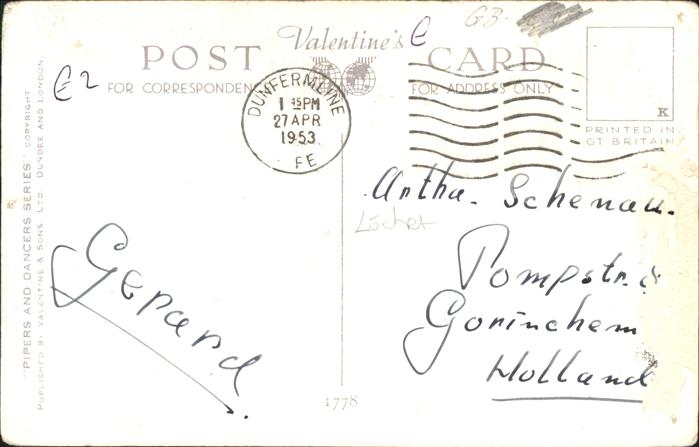 POST Valentine's CARD
FOR CORRESPONDEN FOR ADDRESS ONLY
€
GB-
€2
DUNFERMLINE
1 45PM
27 APR
1953
FE
K
PRINTED IN
GT BRITAIN
"PIPERS AND DANCERS SERIES" COPYRIGHT
PUBLISHED BY VALENTINE & SONS, LTD. DUNDEE AND LONDON.
Gerard.
Artha. Schenau.
Pompstr.
Gorinchem
Holland
1778